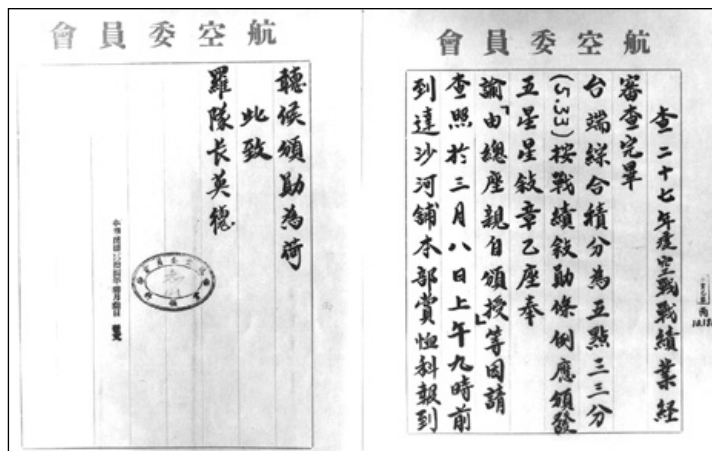 航空委員會
查二十七年度空戰戰績業經
審查完畢
台端綜合積分為五點三三分
(5.33)按戰績敘勛條例應頒發
五星星敘章乙座奉
諭「由總座親自頒授」等因請
查照於三月八日上午九時前
到達沙河鋪本部賞恤科報到
航空委員會
聽候頒勛為荷
此致
羅隊長英德